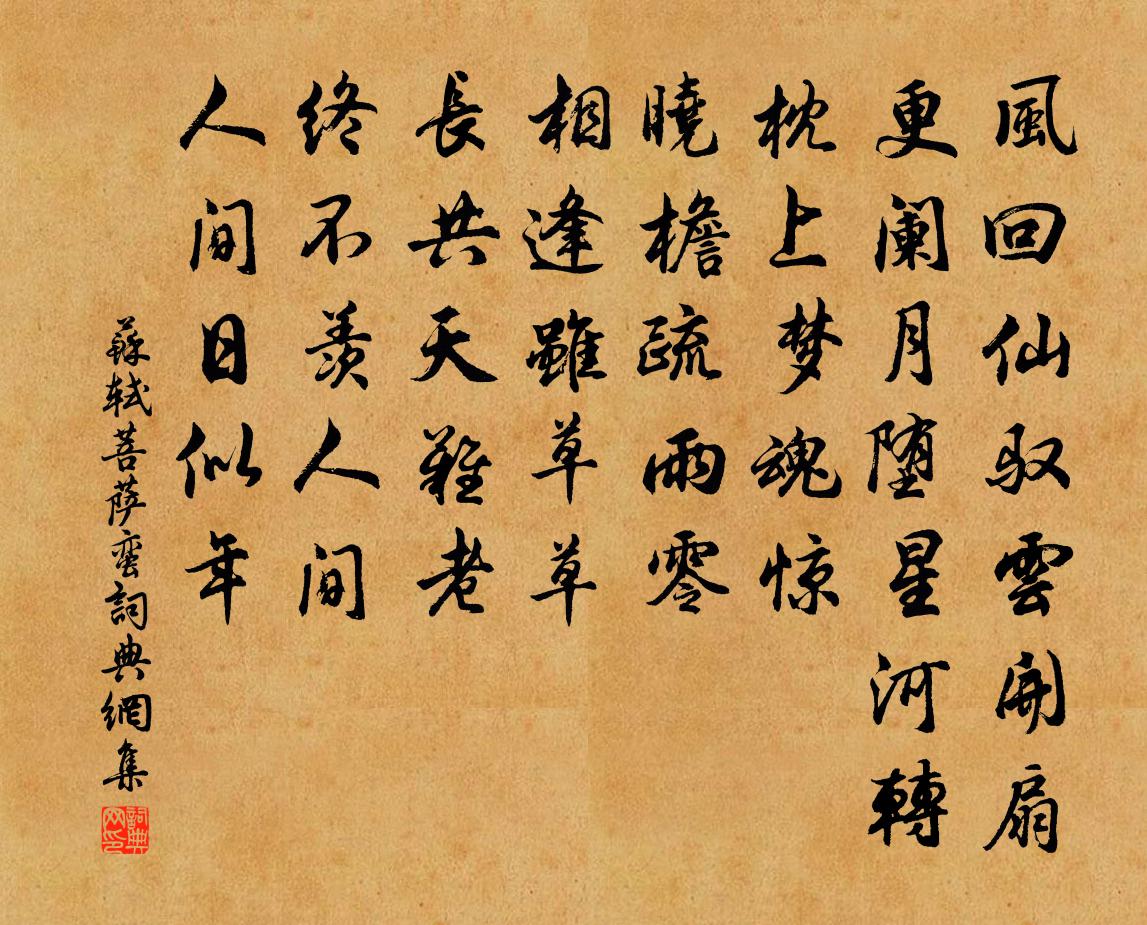 風回仙馭雲開扇
更阑月堕星河轉
枕上梦魂惊
曉檐疏雨零
相逢雖草草
長共天難老
終不羨人间
人间日似年
蘇軾菩萨蛮詞典網集
詞典网印